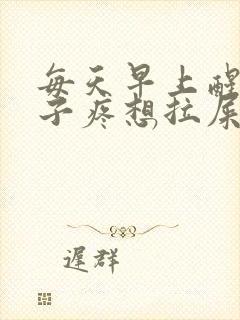 每天早上醒
子疼想拉屎
遲群